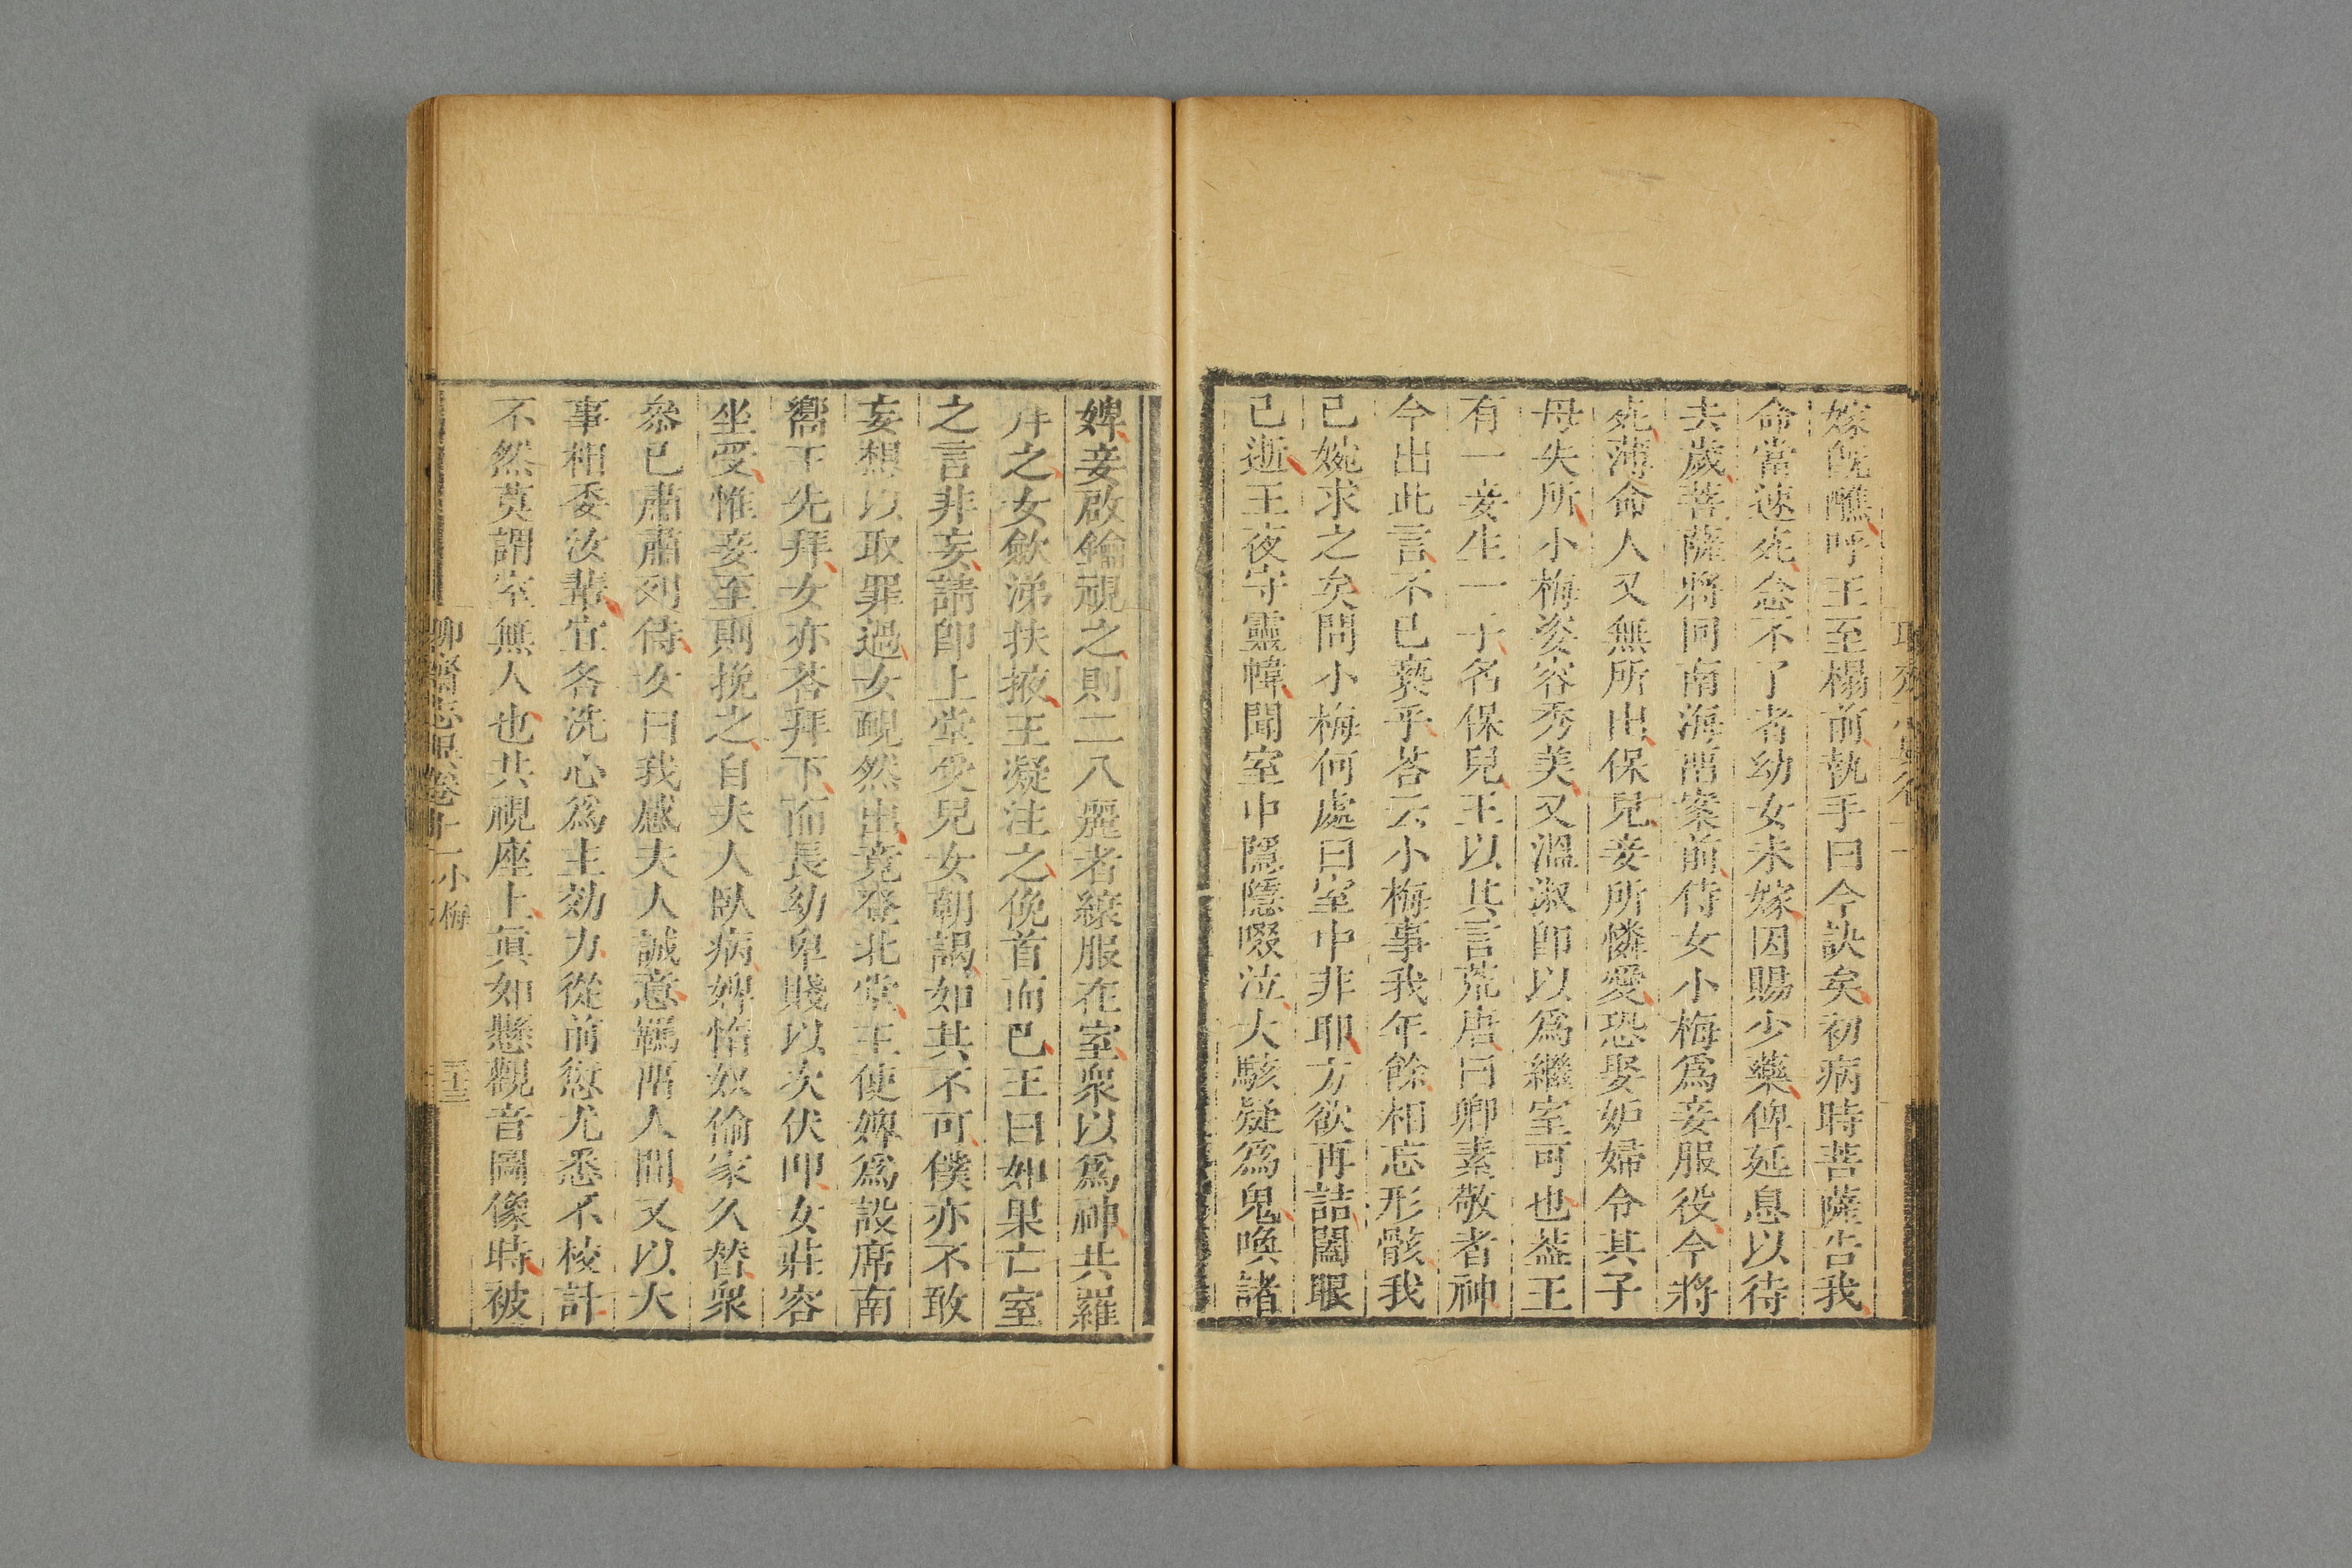 嫁旣醮呼王至榻前執手曰今訣矣初病時菩薩告我
命當速死念不了者幼女未嫁因賜少藥俾延息以待
去歲菩薩將回南海畱案前侍女小梅爲妾服役今將
死薄命人又無所出保兒妾所憐愛恐娶妒婦令其子
母失所小梅姿容秀美又溫淑卽以爲繼室可也葢王
有一妾生一子名保兒王以其言荒唐曰卿素敬者神
今出此言不已褻乎荅云小梅事我年餘相忘形骸我
已婉求之矣問小梅何處曰室中非耶方欲再詰闔眼
已逝王夜守靈幃聞室中隱隱啜泣大駭疑爲鬼喚諸
婢妾啟鑰視之則二八麗者縗服在室衆以爲神共羅
拜之女歛涕扶掖王凝注之俛首而已王曰如果亡室
之言非妄請卽上堂受兒女朝謁如其不可僕亦不敢
妄想以取罪過女靦然出竟登北堂王使婢爲設席南
嚮王先拜女亦荅拜下而長幼卑賤以次伏叩女莊容
坐受惟妾至則挽之自夫人臥病婢惰奴偷家久替衆
叅已肅肅列侍女曰我感夫人誠意羈畱人間又以大
事相委汝輩宜各洗心爲主効力從前愆尤悉不校計
不然莫謂室無人也共視座上眞如懸觀音圖像時被
聊齋志異卷十一小梅 三十三